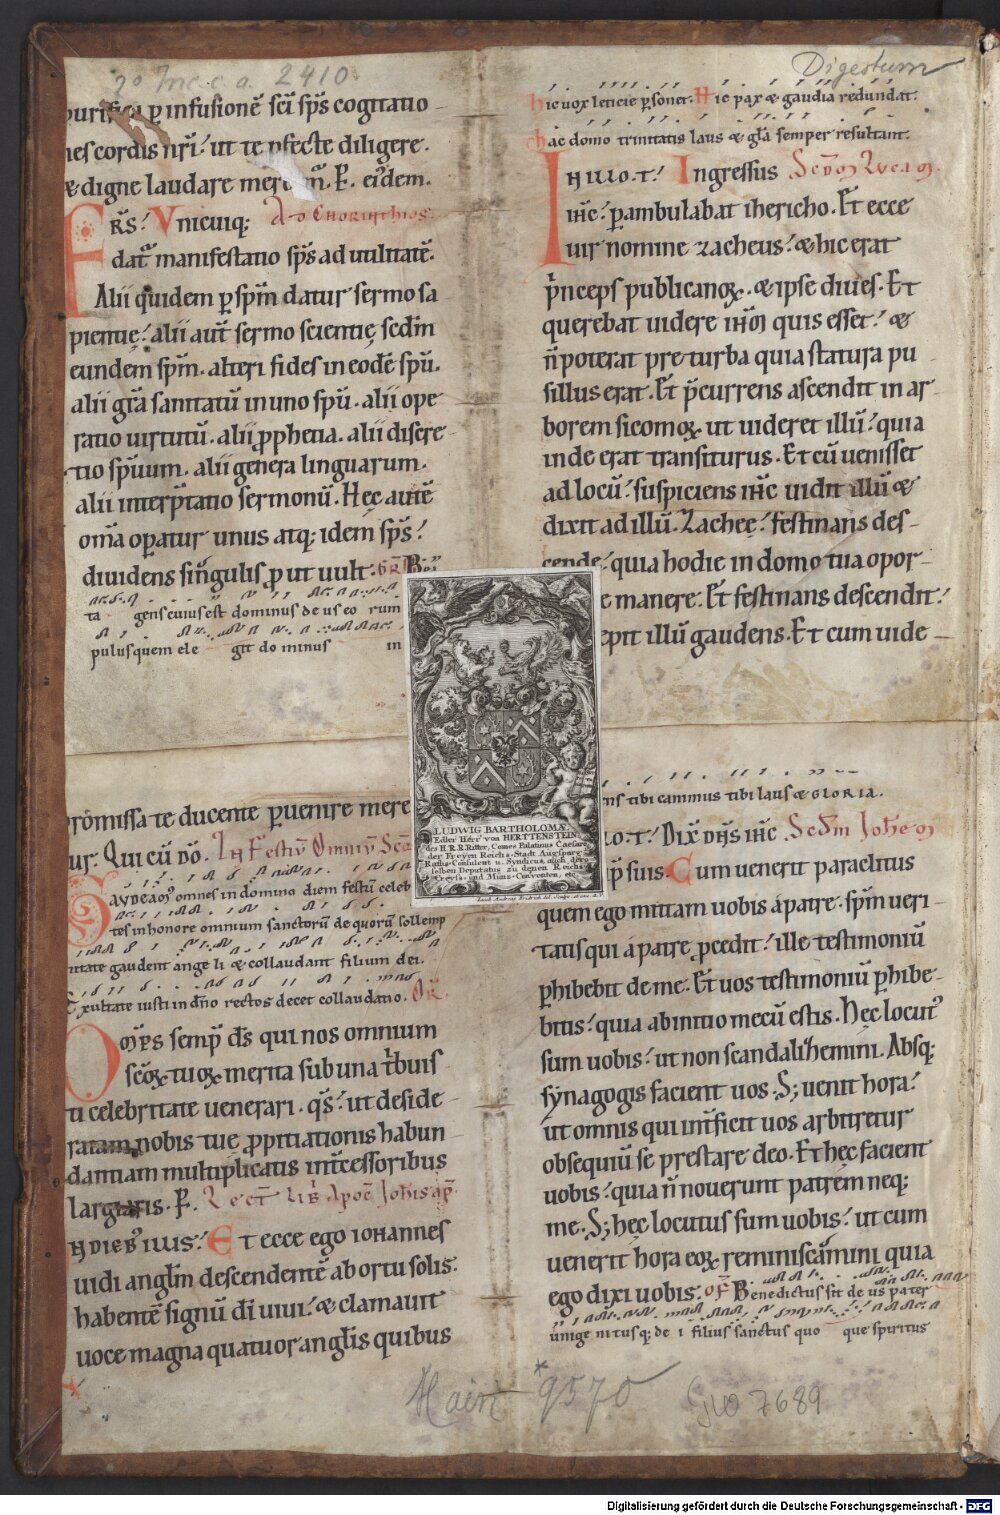 2° Inc. c. a. 2410
Digestum
purifica ꝑ infusionē sc̄i sp̄s cogitatio
nes cordis nr̄i. ut te ꝑfecte diligere.
& digne laudare
Ad Chorinthios.
Vnicuiq;
datᵘ manifestatio sp̄s ad utilitatē.
Alii quidem ꝑ sp̄m datur sermo sa
pientię. alii aut̄ sermo scientię scd̄m
eundem sp̄m. alteri fides in eodē sp̄u.
alii gr̄a sanitatū in uno sp̄u. alii ope
ratio uirtutū. alii ꝓphetia. alii discre
tio sp̄uum. alii genera linguarum.
alii interp̄tatio sermonū. Hęc autē
om̄a oꝑatur unus atq; idem sp̄s.
diuidens singulis ꝓut uult.
ta gens cuius est dominus de us eo rum
pulus quem ele git do minus in
promissa te ducente ꝑuenire mere
In Festiu Omniu
Gaudeamus omnes in domino diem festū celeb
tes in honore omnium sanctorū de quorū sollemp
nitate gaudent ange li & collaudant filium dei.
Exultate iusti in dn̄o rectos decet collaudatio.
semp̄ ds̄ qui nos omnium
scōꝝ tuoꝝ merita sub una tbuis
ti celebritate uenerari. qs̄. ut deside
ratam nobis tue ꝓpitiationis habun
dantiam multiplicatis int̄cessoribus
largiaris. P. Lect lib Apoc Johis ap
N DIEBꝰ ILLIS. Et ecce ego IOHANNES
uidi angl̄m descendentē ab ortu solis.
habentē signū dī uiui. & clamauit
uoce magna quatuor angl̄is quibus
hic uox leticie ꝑsonet. Hic pax & gaudia redundat.
hac domo trinitatis laus & gl̄a semper resultant.
IN ILLO.T. Ingressus Scd̄m Lucam
ihc̄. ꝑambulabat ihericho. Et ecce
uir nomine zacheus. & hic erat
p̄nceps publicanoꝝ. & ipse diues. Et
querebat uidere ihm̄ quis esset. &
n̄ poterat pre turba quia statura pu
sillus erat. Et p̄currens ascendit in ar
borem sicomoꝝ. ut uideret illū. quia
inde erat transiturus. Et cū uenisset
ad locū. suspiciens ihc̄ uidit illū &
dixit ad illū. Zachee. festinans des
cende. quia hodie in domo tua opor
e manere. Et festinans descendit.
epit illū gaudens. Et cum uide
ns tibi canimus tibi laus & GLORIA.
LO.T. Dix̄ dn̄s ihc̄. Scd̄m Johem
ip̄ suis. Cum uenerit paraclitus
quem ego mittam uobis á patre. sp̄m ueri
tatis qui á patre ꝓcedit. ille testimoniū
ꝑhibebit de me. Et uos testimoniū ꝑhibe
bitis. quia ab initio mecū estis. Hec locutꝰ
sum uobis. ut non scandalizemini. Absq;
synagogis facient uos. S; uenit hora.
ut omnis qui int̄ficit uos arbitretur
obsequiū se prestare deo. Et hec facient
uobis. quia n̄ nouerunt patrem neq;
me. S; hec locutus sum uobis. ut cum
uenerit hora eoꝝ reminiscamini quia
ego dixi uobis. OF. Benedictus sit de us pater
unige nitusq; de i filius sanctus quo que spiritus
LUDWIG BARTHOLOMÆ
Edler Herr von HERTTENSTEIN
des H.R.R. Ritter, Comes Palatinus Cæsare
der Freyen Reichs-Stadt Augspurg
Raths-Consulent u. Syndicus, auch dero
selben Deputatus zu denen Reichs-
Creyss- und Münz-Conventen, etc.
Hain *9570
GW 7689
Digitalisierung gefördert durch die Deutsche Forschungsgemeinschaft - DFG